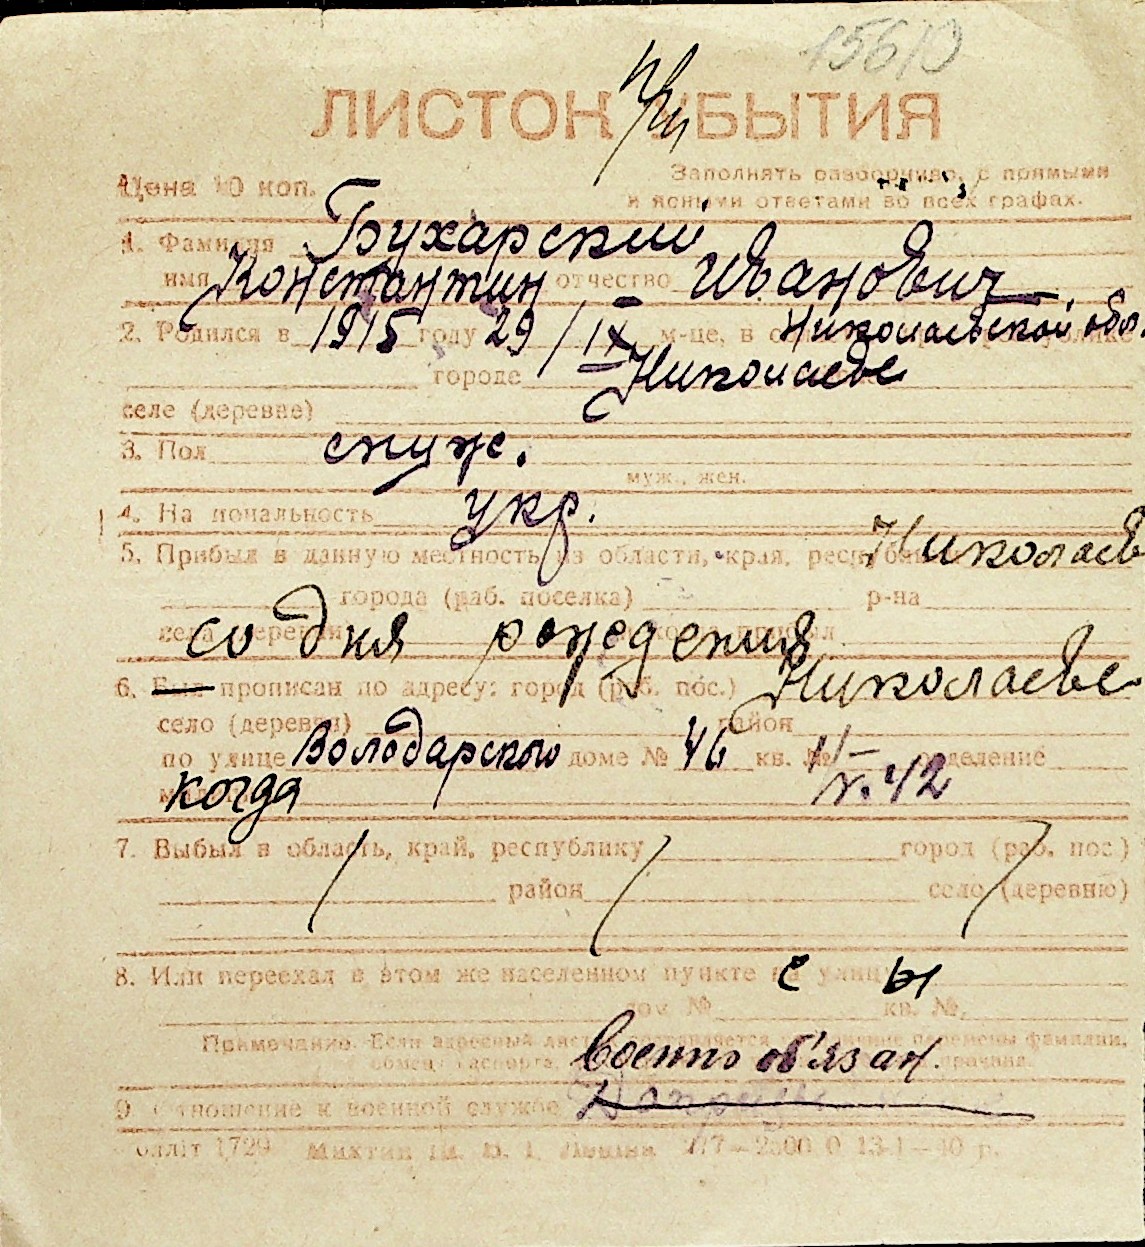 15610
ЛИСТОК УБЫТИЯ
Цена 10 коп.
Заполнять разборчиво, с прямыми
и ясными ответами во всех графах.
1. Фамилия Бухарский
имя Константин отчество Иванович
2. Родился в 1915 году 29/IX м-це, в Николаевской обл.
городе Николаеве
селе (деревне)
3. Пол служ.
муж., жен.
4. Национальность укр.
5. Прибыл в данную местность из области, края, республики Николаев
города (раб. поселка) р-на
села деревни
со дня рождения
6. Был прописан по адресу: город (раб. пос.) Николаеве
село (деревня) район
по улице Володарского доме № 46 кв. № 1 отделение
когда V. 42
7. Выбыл в область, край, республику город (раб. пос.)
район село (деревню)
8. Или переехал в этом же населенном пункте на улицу
дом № кв. №
Примечание. Если адресный перемены фамилии,
военно об'язан.
9. Отношение к военной службе
1729 13-1-40 р.